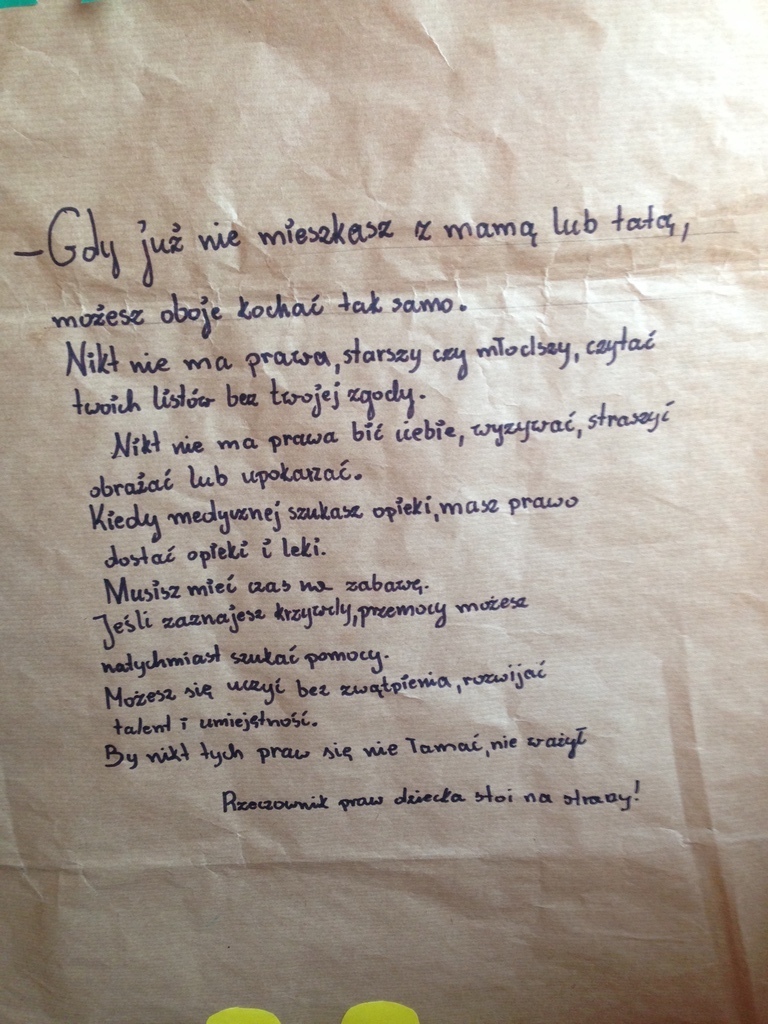 – Gdy już nie mieszkasz z mamą lub tatą,
możesz oboje kochać tak samo.
Nikt nie ma prawa, starszy czy młodszy, czytać
twoich listów bez twojej zgody.
Nikt nie ma prawa bić ciebie, wyzywać, straszyć
obrażać lub upokarzać.
Kiedy medycznej szukasz opieki, masz prawo
dostać opieki i leki.
Musisz mieć czas na zabawę.
Jeśli zaznajesz krzywdy, przemocy możesz
natychmiast szukać pomocy.
Możesz się uczyć bez zwątpienia, rozwijać
talent i umiejętność.
By nikt tych praw się nie łamać, nie ważył
Rzecznownik praw dziecka stoi na straży!